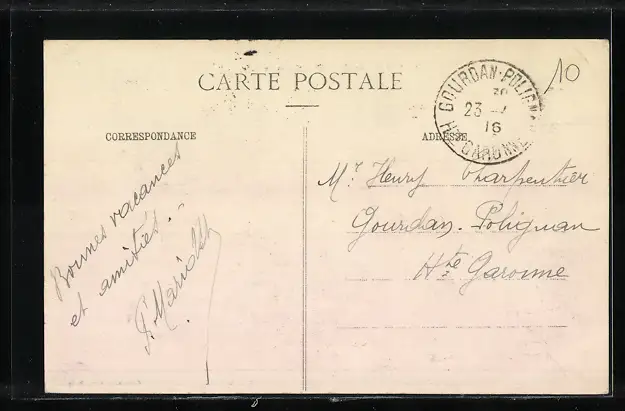 CARTE POSTALE
10
GOURDAN-POLIGNAN
23
16
Hte GARONNE
CORRESPONDANCE
ADRESSE
Bonnes vacances
et amitiés.
Mr Henry Charpentier
Gourdan-Polignan
Hte Garonne